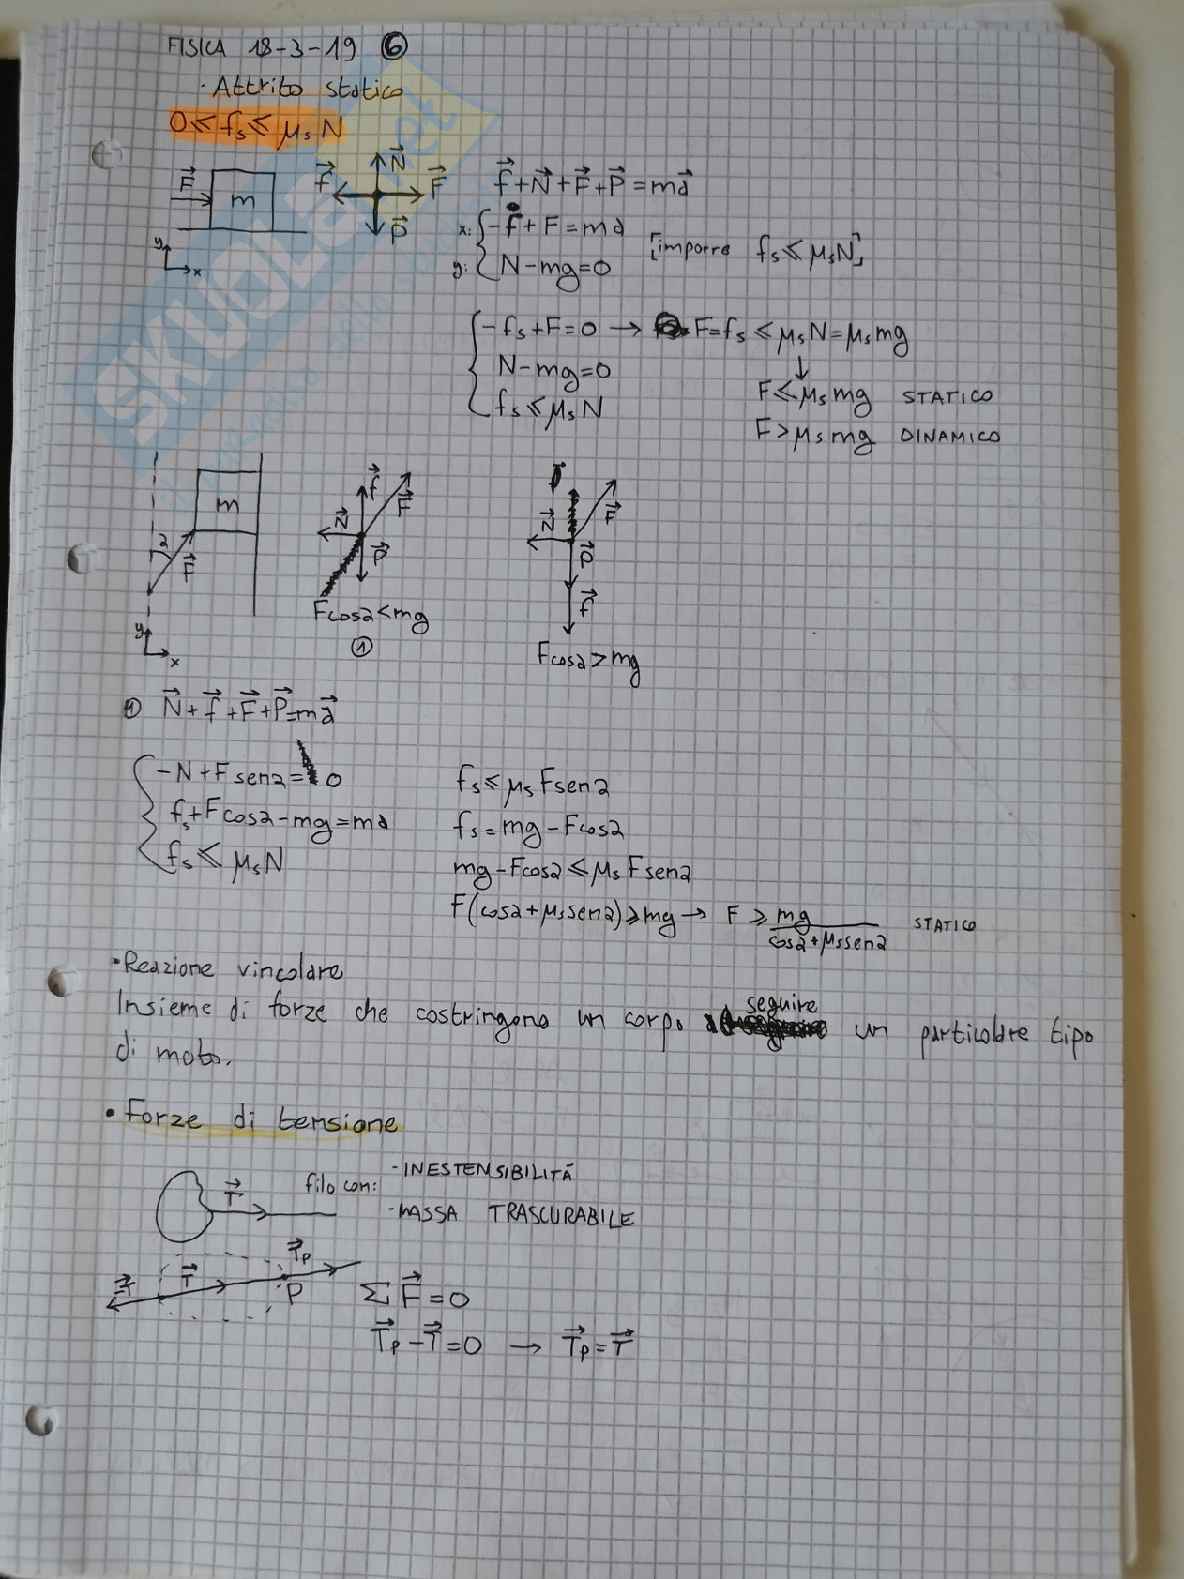 FISICA 18-3-19 ⑥
· Attrito statico
0 ≤ fs ≤ μs N
F m
f N F P
y x
f + N + F + P = ma
x: -f + F = ma
y: N - mg = 0
[imporre fs ≤ μsN]
-fs + F = 0 → F = fs ≤ μsN = μsmg
N - mg = 0
fs ≤ μsN
↓
F ≤ μsmg STATICO
F > μsmg DINAMICO
m
a F
y x
f F N P
Fcosa < mg
①
N F P f
Fcosa > mg
① N + f + F + P = ma
-N + Fsena = 0
fs + Fcosa - mg = ma
fs ≤ μsN
fs ≤ μsFsena
fs = mg - Fcosa
mg - Fcosa ≤ μsFsena
F(cosa + μssena) ≥ mg → F ≥ mg / cosa + μssena STATICO
· Reazione vincolare
Insieme di forze che costringono un corpo a seguire un particolare tipo
di moto.
· Forze di tensione
T filo con:
- INESTENSIBILITÁ
- MASSA TRASCURABILE
T Tp P
ΣF = 0
Tp - T = 0 → Tp = T
SKUOLA.net